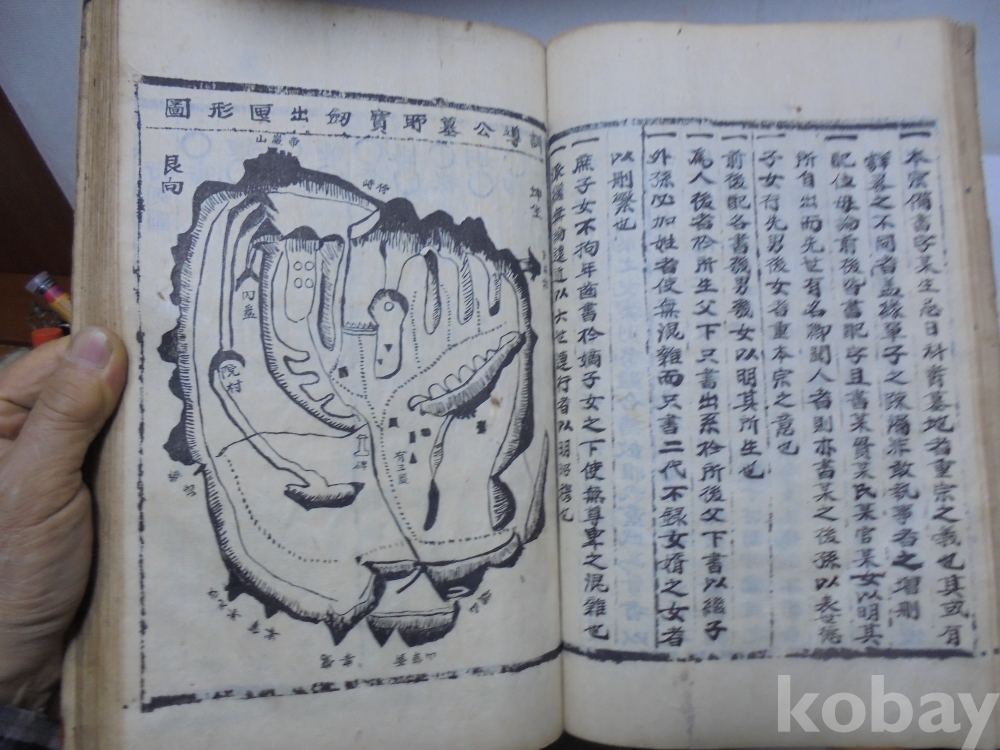 一本宗備書字某生忌日科爵墓地者重宗之義也其或有
詳畧之不同者盖緣單子之踈漏非敢執事者之增刪
一配位毋論前後皆書配字且書某貫某氏某官某女以明其
所自出而先世有名卿聞人者則亦書某之後孫以表世德
一子女行先男後女者重本宗之意也
一前後配各書幾男幾女以明其所生也
一爲人後者於所生父下只書出系於所後父下書以繼子
一外孫必加姓者使無混雜而只書二代不錄女婿之女者
以刪繁也
一庶子女不拘年齒書於嫡子女之下使無尊卑之混雜也
訓導公墓耶寶劒出匣形圖
艮向
內墓
院村
碑
有三墓
kobay